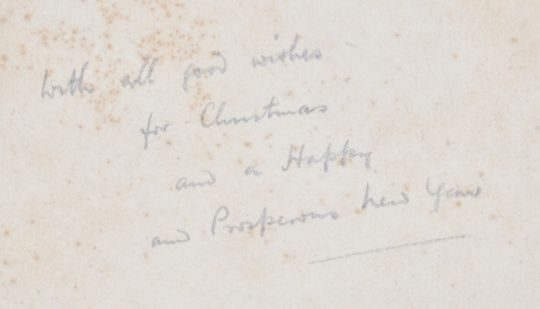 With all good wishes
for Christmas
and a Happy
and Prosperous New Year